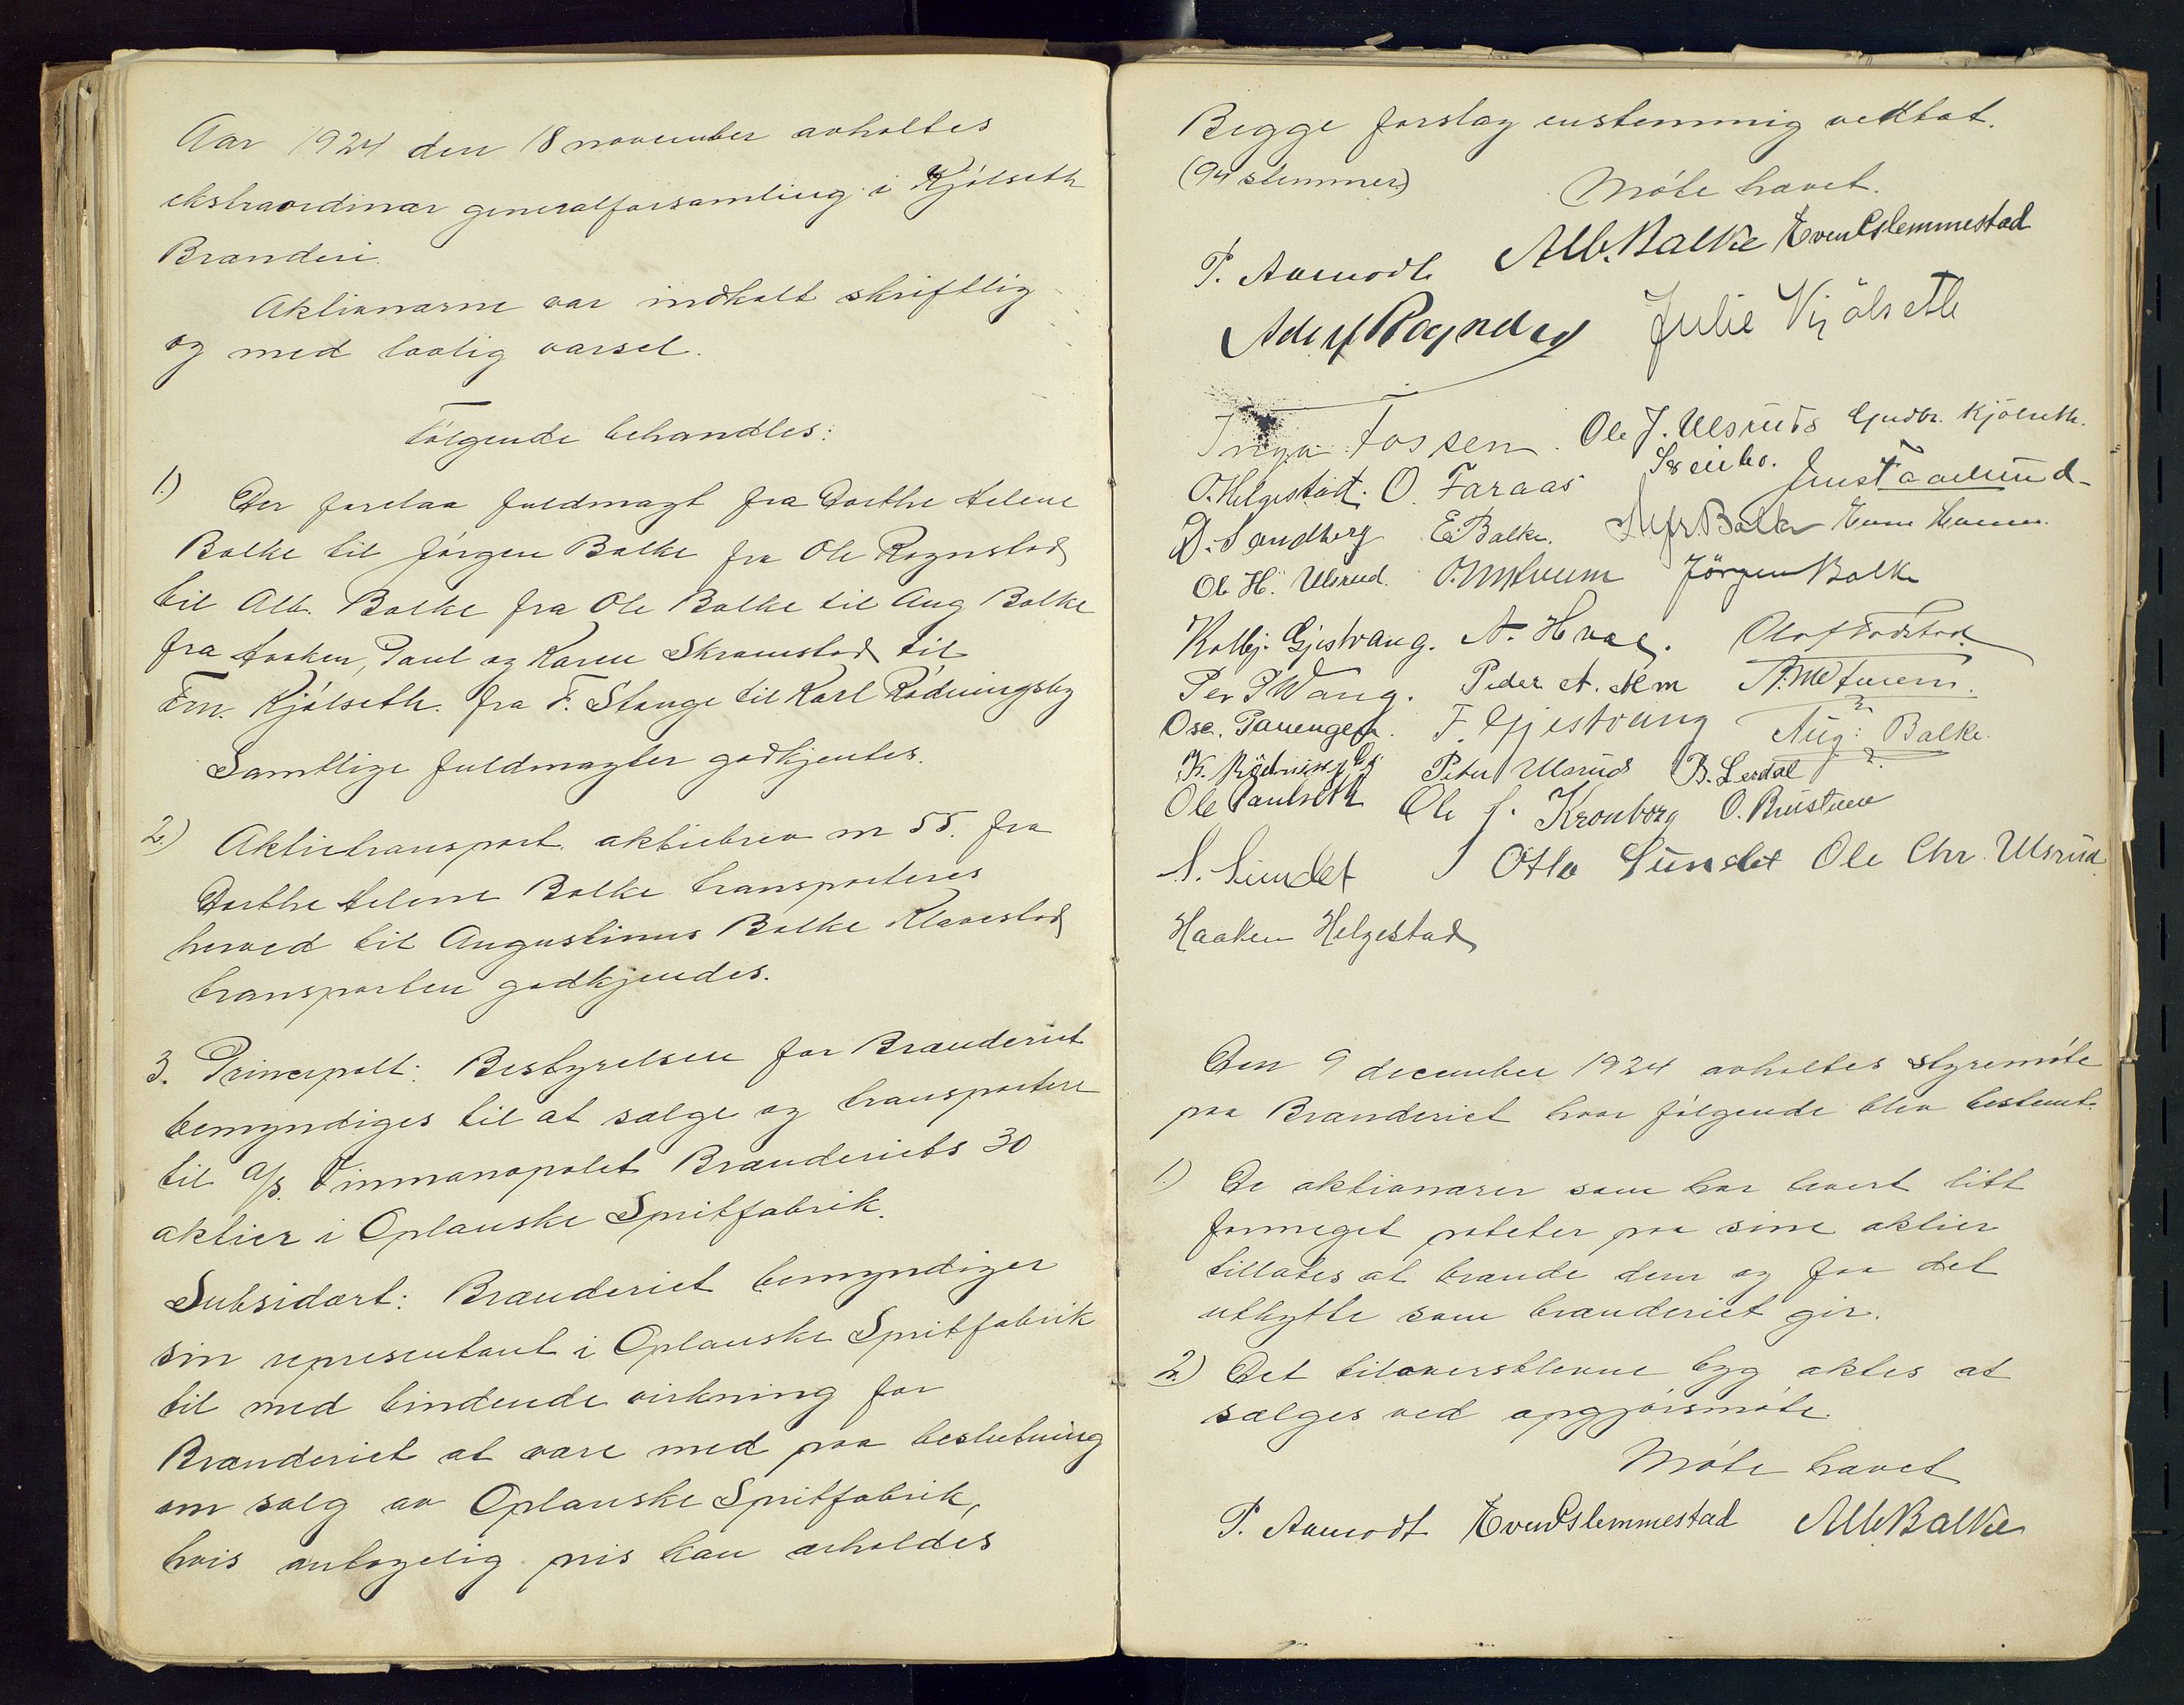 Aar 1924 den 18 november avholtes
ekstraordinær generalforsamling i Kjølseth
Brænderi.
Aktionærne var indkalt skriftlig
og med lovlig varsel.
Følgende behandles:
1.) Der forelaa fuldmagt fra Dorthe Helene
Balke til Jørgen Balke fra Ole Rognstad
til Alb. Balke fra Ole Balke til Aug Balke
fra Haaken, Paul og Karen Skramstad til
Ern. Kjølseth. fra F. Stange til Karl Rødningsby
Samtlige fuldmagter godkjentes.
2.) Aktietransport. aktiebrev nr 55. fra
Dorthe Helene Balke transporteres
herved til Augustinus Balke Klavestad
transporten godkjendes.
3. Principalt: Bestyrelsen for Brænderiet
bemyndiges til at sælge og transportere
til A/S. Vinmonopolet Brænderiets 30
aktier i Oplanske Spritfabrik.
Subsidært: Brænderiet bemyndiger
sin representant i Oplanske Spritfabrik
til med bindende virkning for
Brænderiet at være med paa beslutning
om salg av Oplanske Spritfabrik,
hvis antagelig pris kan erholdes
Begge forslag enstemmig vedtat.
(94 stemmer)
Møte hævet.
P. Aamodt Alb. Balke Even Slemmestad
Adolf Rognstad Julie Kjølseth
Inga Fossen. Ole J. Ulsrud Gudbr. Kjølseth.
O. Helgestad. O. Faraas
D. Sandberg E. Balke. Alfr. Balke
Ole H. Ulsrud. Jörgen Balke
Kolbj. Gjestvang. A. Hval. Olaf
Per P Wang. Peder A. Alm
F. Gjestvang Aug: Balke.
K. Rødningsby Peter Ulsrud B. Lerdal
Ole Paulseth Ole J. Kronborg
S. Sundet Otto Sundet Ole Chr. Ulsrud
Haaken Helgestad
Den 9 december 1924 avholtes styremøte
paa Brænderiet hvor følgende blev bestemt.
1.) De aktionærer som har levert litt
formeget poteter paa sine aktier
tillates at brænde dem og faa det
utbytte som brænderiet gir.
2.) Det tiloversblevne byg aktes at
sælges ved opgjørsmøte
Møte hævet
P. Aamodt Even Slemmestad Alb Balke